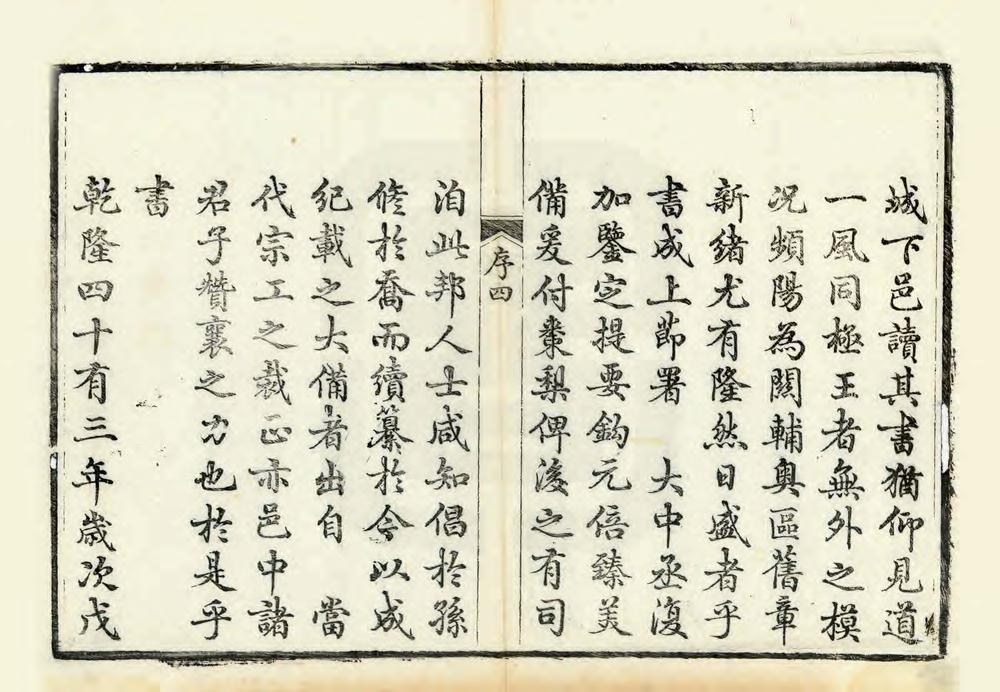 城下邑讀其書猶仰見道
一風同極王者無外之模
况頻陽為關輔奧區舊章
新緒尤有隆然日盛者乎
書成上節署　大中丞復
加鑒定提要鈎元倍臻美
備爰付棗梨俾後之有司
序四
洎此邦人士咸知倡於孫
修於喬而續纂於今以成
紀載之大備者出自　當
代宗工之裁正亦邑中諸
君子贊襄之力也於是乎
書
乾隆四十有三年歲次戊